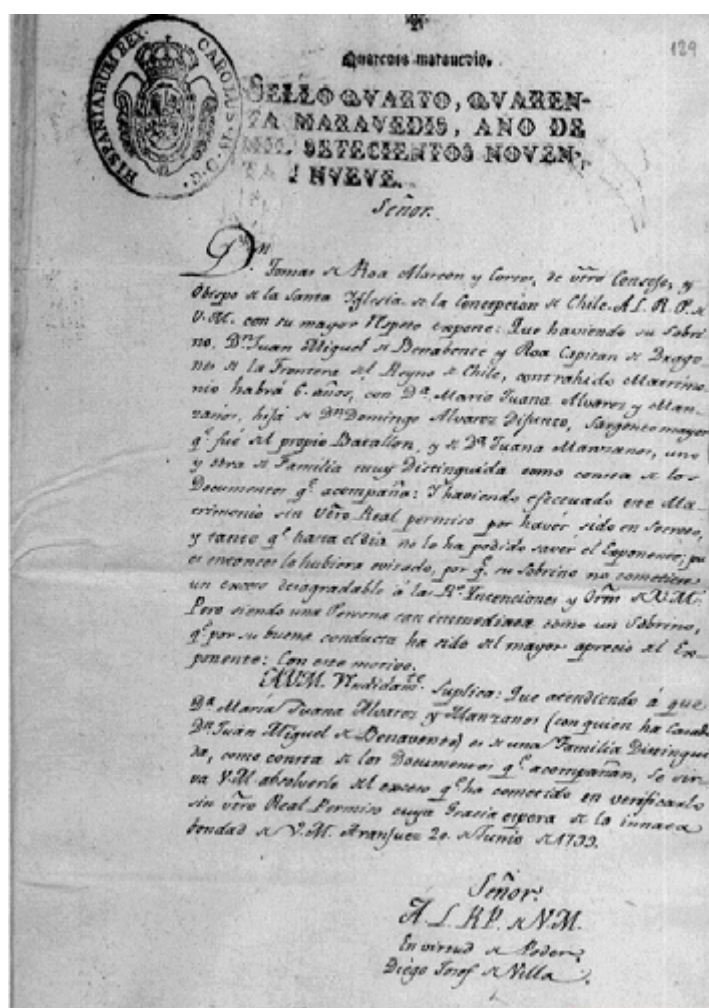 129
Quarenta maravedis.
HISPANIARUM REX. CAROLUS IV D.G.
SELLO QVARTO, QVAREN-
TA MARAVEDIS, AÑO DE
MIL SETECIENTOS NOVEN-
TA I NVEVE.
Señor.
Dn. Tomas de Roa Alarcon y Cortes, de vtro Consejo, y
Obispo de la Santa Yglesia de la Concepcion de Chile. A L. R. P. de
V.M. con su mayor respeto expone: Que haviendo su Sobri-
no, Dn. Juan Miguel de Benabente y Roa Capitan de Drago-
nes de la Frontera del Reyno de Chile, contrahido Matrimo-
nio habrá 6. años, con Da. Maria Juana Alvarez y Man-
zanos, hija de Dn. Domingo Alvarez Difunto, Sargento mayor
qe. fué del propio Batallon, y de Da. Juana Manzanos, uno
y otra de Familia muy Distinguida como consta de los
Documentos qe. acompaña: Y haviendo efectuado este Ma-
trimonio sin Vtro Real permiso por haver sido en Secreto,
y tanto qe. hasta el dia no lo ha podido saver el Exponente; pu
es entonces lo hubiera evitado, por qe. su Sobrino no cometiese
un exceso desagradable á las Rs. Intenciones y Orns de V.M.
Pero siendo una Persona tan inmediata como un Sobrino,
qe. por su buena conducta ha sido del mayor aprecio del Ex-
ponente: Con este motivo.
A V.M. Rendidamte. Suplica: Que atendiendo á que
Da. María Juana Alvarez y Manzanos (con quien ha Casado
Dn. Juan Miguel de Benavente) es de una Familia Distingui
da, como consta de los Documentos qe. acompañan, se sir-
va V.M. absolverle del exceso qe. ha cometido en verificarlo
sin vtro Real Permiso cuya Gracia espera de la innata
bondad de V.M. Aranjuez 20. de Junio de 1799.
Señor.
A. L. R. P. de V.M.
En virtud de Poder,
Diego Josef de Villa.